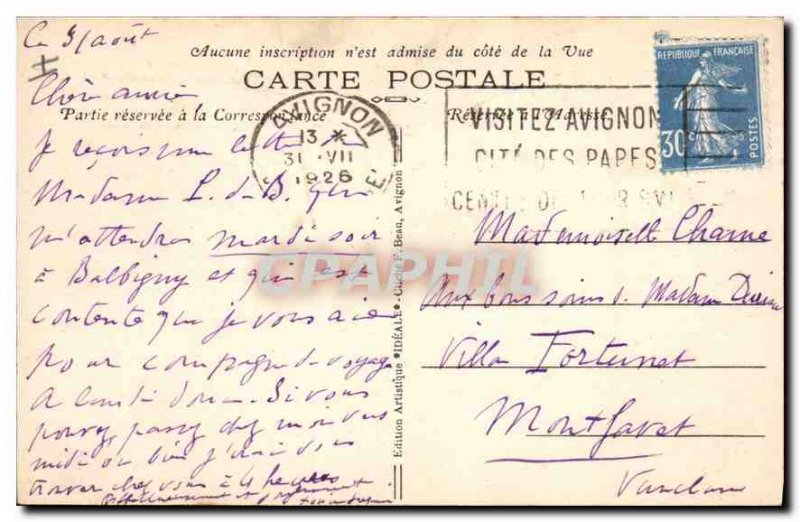 Aucune inscription n'est admise du côté de la Vue
CARTE POSTALE
Partie réservée à la Correspondance
Réservée à l'Adresse
Chère amie
Je reçois une lettre de
Madame L. de B. qui
m'attendra mardi soir
à Balbigny et qui est
contente que je vous aie
pour compagne de voyage
Si vous
pouvez passer chez moi vers
midi ou bien j'irai vous
trouver chez vous à 4 heures
AVIGNON
13 *
31 VII
1926
VISITEZ AVIGNON
CITÉ DES PAPES
REPUBLIQUE FRANÇAISE
30c
POSTES
Mademoiselle
Aux bons soins d. Madame
Villa Fortunet
Montfavet
Vaucluse
Edition Artistique "IDÉALE" - Cliché F. Beau, Avignon
CPAPHIL